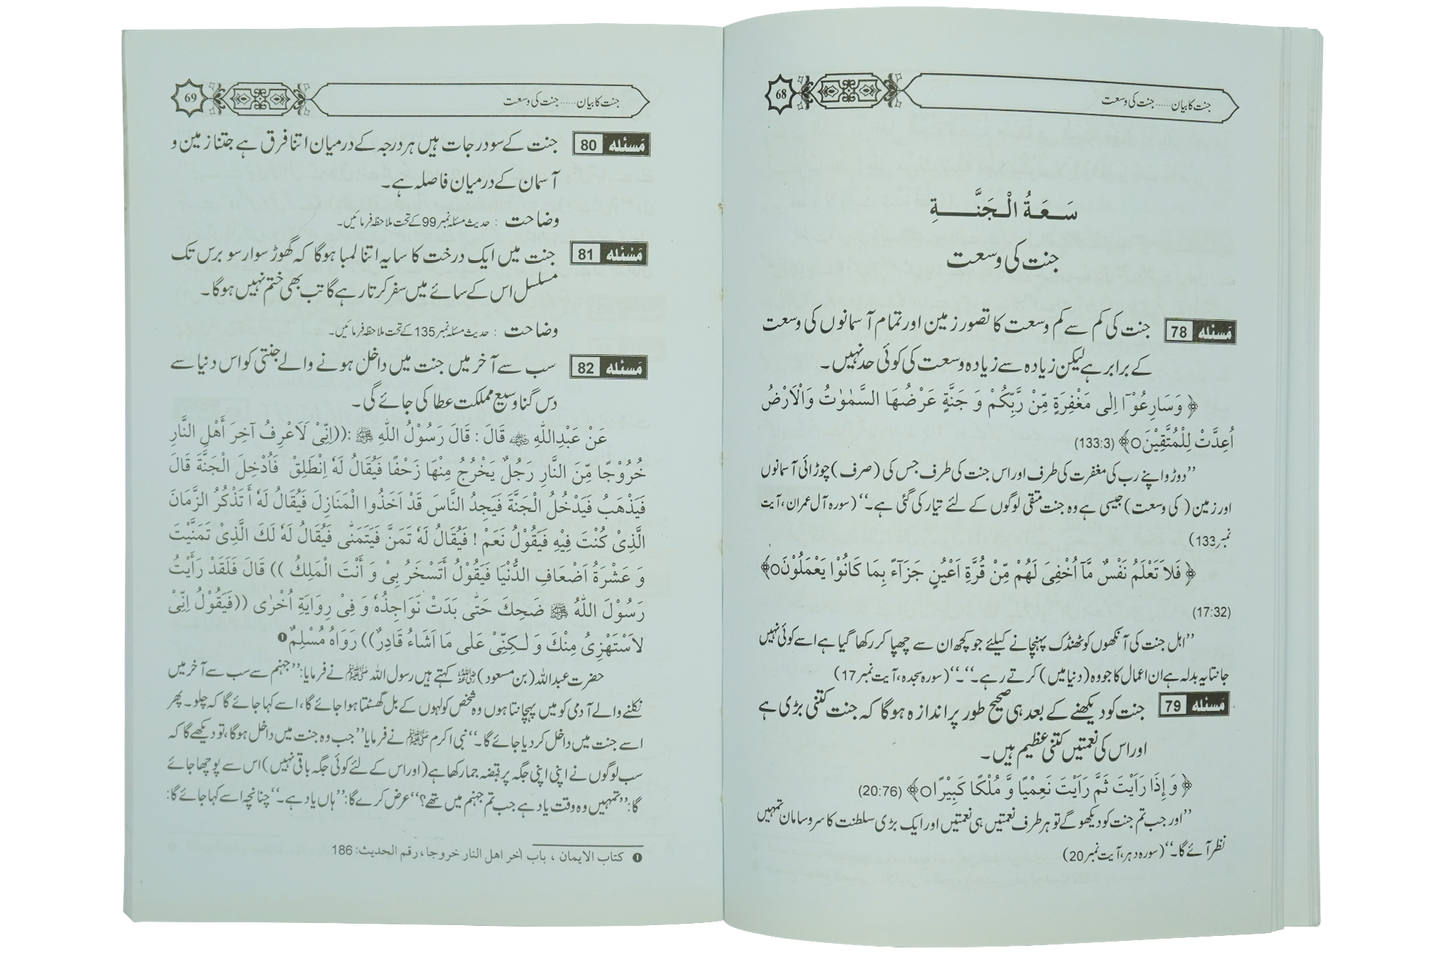 68
جنت کا بیان......جنت کی وسعت
سَعَةُ الْجَنَّةِ
جنت کی وسعت
مَسئله 78 جنت کی کم سے کم وسعت کا تصور زمین اور تمام آسمانوں کی وسعت
کے برابر ہے لیکن زیادہ سے زیادہ وسعت کی کوئی حد نہیں۔
﴿ وَسَارِعُوْٓا اِلٰى مَغْفِرَةٍ مِّنْ رَّبِّكُمْ وَ جَنَّةٍ عَرْضُهَا السَّمٰوٰتُ وَالْاَرْضُ
اُعِدَّتْ لِلْمُتَّقِيْنَ○﴾ (133:3)
’’دوڑو اپنے رب کی مغفرت کی طرف اور اس جنت کی طرف جس کی (صرف) چوڑائی آسمانوں
اور زمین (کی وسعت) جیسی ہے وہ جنت متقی لوگوں کے لئے تیار کی گئی ہے۔‘‘ (سورہ آل عمران، آیت
نمبر 133)
﴿ فَلاَ تَعْلَمُ نَفْسٌ مَّآ اُخْفِيَ لَهُمْ مِّنْ قُرَّةِ اَعْيُنٍ جَزَآءً بِمَا كَانُوْا يَعْمَلُوْنَ○﴾
(17:32)
’’اہل جنت کی آنکھوں کو ٹھنڈک پہنچانے کیلئے جو کچھ ان سے چھپا کر رکھا گیا ہے اسے کوئی نہیں
جانتا یہ بدلہ ہے ان اعمال کا جو وہ (دنیا میں) کرتے رہے۔‘‘۔‘‘ (سورہ سجدہ، آیت نمبر 17)
مَسئله 79 جنت کو دیکھنے کے بعد ہی صحیح طور پر اندازہ ہوگا کہ جنت کتنی بڑی ہے
اور اس کی نعمتیں کتنی عظیم ہیں۔
﴿ وَ اِذَا رَاَيْتَ ثَمَّ رَاَيْتَ نَعِيْمًا وَّ مُلْكًا كَبِيْرًا○﴾ (20:76)
’’اور جب تم جنت کو دیکھو گے تو ہر طرف نعمتیں ہی نعمتیں اور ایک بڑی سلطنت کا سروسامان تمہیں
نظر آئے گا۔‘‘ (سورہ دہر، آیت نمبر 20)
69
جنت کا بیان......جنت کی وسعت
مَسئله 80 جنت کے سو درجات ہیں ہر درجہ کے درمیان اتنا فرق ہے جتنا زمین و
آسمان کے درمیان فاصلہ ہے۔
وضاحت : حدیث مسئلہ نمبر 99 کے تحت ملاحظہ فرمائیں۔
مَسئله 81 جنت میں ایک درخت کا سایہ اتنا لمبا ہوگا کہ گھوڑ سوار سو برس تک
مسلسل اس کے سائے میں سفر کرتا رہے گا تب بھی ختم نہیں ہوگا۔
وضاحت : حدیث مسئلہ نمبر 135 کے تحت ملاحظہ فرمائیں۔
مَسئله 82 سب سے آخر میں جنت میں داخل ہونے والے جنتی کو اس دنیا سے
دس گنا وسیع مملکت عطا کی جائے گی۔
عَنْ عَبْدِاللّٰهِ ؓ قَالَ : قَالَ رَسُوْلُ اللّٰهِ ﷺ :((اِنِّيْ لَاَعْرِفُ آخِرَ أَهْلِ النَّارِ
خُرُوْجًا مِّنَ النَّارِ رَجُلٌ يَخْرُجُ مِنْهَا زَحْفًا فَيُقَالُ لَهٗ اِنْطَلِقْ فَاُدْخِلَ الْجَنَّةَ قَالَ
فَيَذْهَبُ فَيَدْخُلُ الْجَنَّةَ فَيَجِدُ النَّاسَ قَدْ اَخَذُوا الْمَنَازِلَ فَيُقَالُ لَهٗ أَتَذْكُرُ الزَّمَانَ
الَّذِيْ كُنْتَ فِيْهِ فَيَقُوْلُ نَعَمْ ! فَيُقَالُ لَهٗ تَمَنَّ فَيَتَمَنّٰى فَيُقَالُ لَهٗ لَكَ الَّذِيْ تَمَنَّيْتَ
وَ عَشْرَةُ اَضْعَافِ الدُّنْيَا فَيَقُوْلُ أَتَسْخَرُ بِيْ وَ أَنْتَ الْمَلِكُ )) قَالَ فَلَقَدْ رَأَيْتُ
رَسُوْلَ اللّٰهُ ﷺ ضَحِكَ حَتّٰى بَدَتْ نَوَاجِذُهٗ وَ فِيْ رِوَايَةٍ اُخْرٰى ((فَيَقُوْلُ اِنِّيْ
لاَسْتَهْزِئُ مِنْكَ وَ لٰكِنِّيْ عَلٰى مَا اَشَاءُ قَادِرٌ)) رَوَاهُ مُسْلِمٌ❶
حضرت عبداللہ (بن مسعود) ؓ کہتے ہیں رسول اللہ ﷺ نے فرمایا:’’جہنم سے سب سے آخر میں
نکلنے والے آدمی کو میں پہچانتا ہوں وہ شخص کولہوں کے بل گھسٹتا ہوا جائے گا، اسے کہا جائے گا کہ چلو۔ پھر
اسے جنت میں داخل کردیا جائے گا۔‘‘ نبی اکرم ﷺ نے فرمایا ’’جب وہ جنت میں داخل ہوگا، تو دیکھے گا کہ
سب لوگوں نے اپنی اپنی جگہ پر قبضہ جما رکھا ہے (اور اس کے لئے کوئی جگہ باقی نہیں) اس سے پوچھا جائے
گا:’’تمہیں وہ وقت یاد ہے جب تم جہنم میں تھے؟‘‘ عرض کرے گا:’’ہاں یاد ہے۔‘‘ چنانچہ اسے کہا جائے گا:
❶ كتاب الايمان ، باب آخر اهل النار خروجا ، رقم الحديث: 186